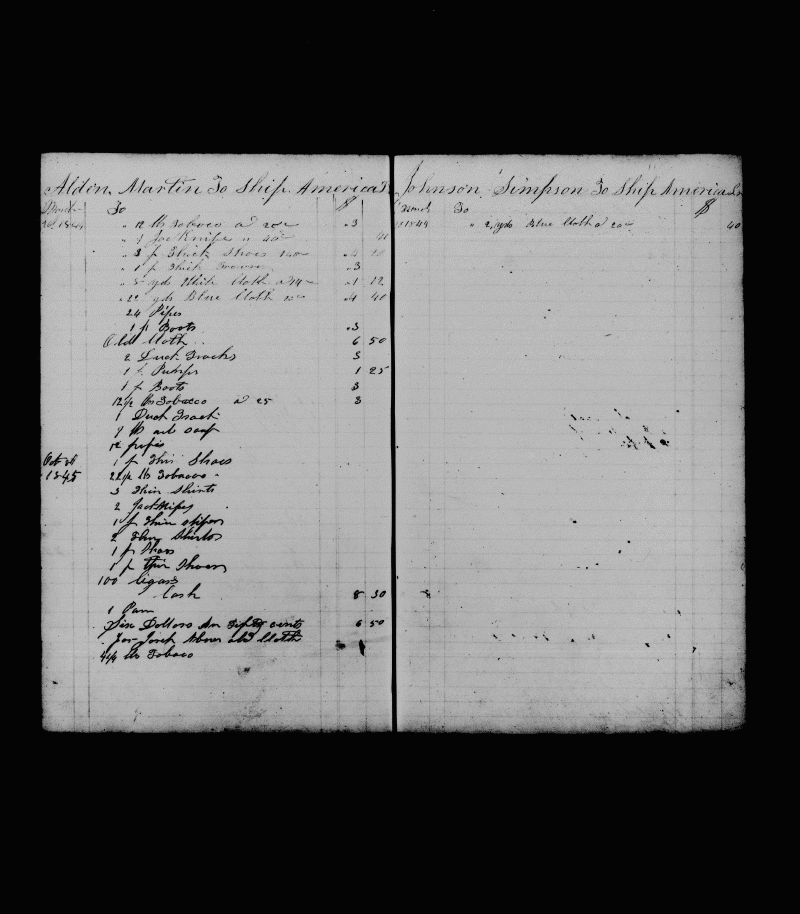 Alden Martin To Ship America Dr
March To $
1844 " 12 lbs Tobaco a 20c .3
" 1 Jacknife " 40c 40
" 3 p Thick Shoes 140 .4 20
" 1 p Thick .3
" 8 yds White Cloth a 14c .1 12
" 22 yds Blue Cloth 20c .4 40
24 Pipes
1 p Boots .3
Old Cloth 6 50
2 Duck Frocks 3
1 p Pumps 1 25
1 p Boots 3
12 1/2 lbs Tobacco a 25 3
1 Duck Frock
lb Soap
12 pipes
Oct 26 1 p Thin Shoes
1845 lbs Tobacco
3 Thin Shirts
2 Jacknifes
1 p Thin slipers
2 Shirts
1 p Shoes
1 p Thin Shoes
100 Cigars
Cash 8 30
1 Pan
Six Dollars An Fifty cents 6 50
for old Cloth
lbs Tobaco
Johnson Simpson To Ship America Dr
March To $
1844 " 2 yds Blue Cloth a 20c 40